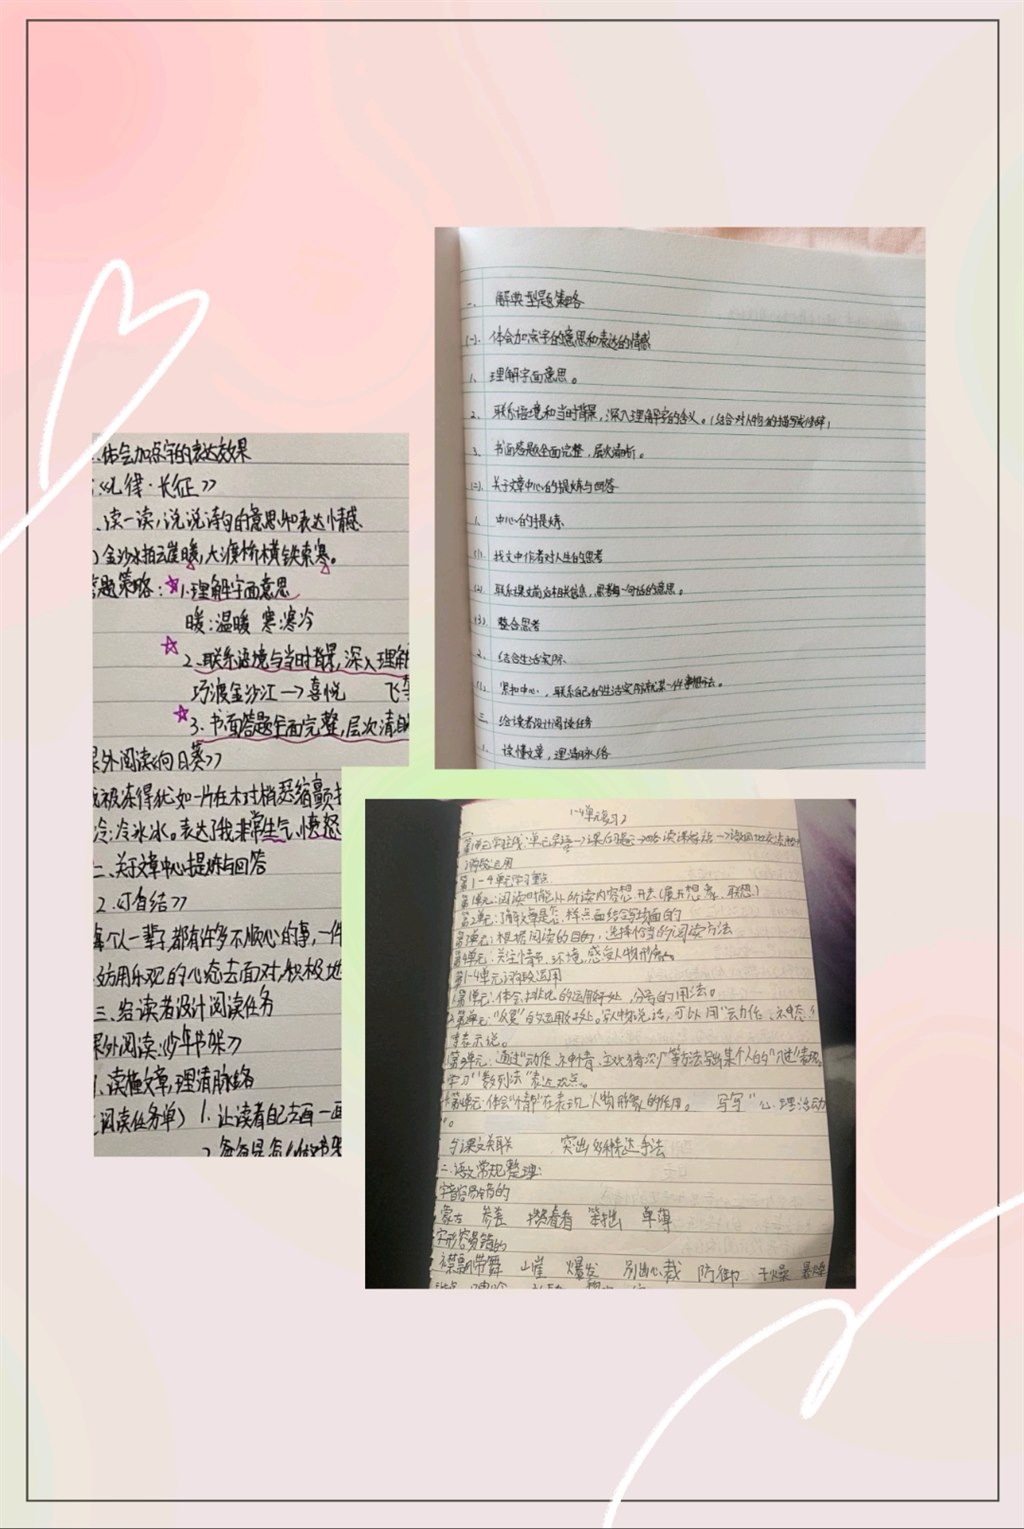 一、解典型题策略
(一).体会加点字的意思和表达的情感
1、理解字面意思。
2、联系语境和当时背景,深入理解字的含义。(结合对人物的描写或修辞)
3、书面答题全面完整,层次清晰。
(二).关于文章中心的提炼与回答
1、中心的提炼
(1).找文中作者对人生的思考
(2).联系课文前后相关信息,思考每一句话的意思。
(3).整合思考
2、结合生活实际
(1).紧扣中心,联系自己的生活实际
三、给读者设计阅读任务
1、读懂文章,理清脉络
体会加点字的表达效果
《七律·长征》
读一读,说说诗句的意思和表达情感
金沙水拍云崖暖,大渡桥横铁索寒。
答题策略:☆1.理解字面意思
暖:温暖 寒:寒冷
☆2.联系语境与当时背景,深入理解
巧渡金沙江—>喜悦 飞
☆3.书面答题全面完整,层次清
课外阅读《向日葵》
我被冻得犹如一片在木对梢瑟缩颤
冷:冷冰冰。表达了我非常生气、愤怒
二、关于文章中心提炼与回答
2.《打自结》
每个人一辈子都有许多不顺心的事,一件
用乐观的心态去面对,积极地
三、给读者设计阅读任务
课外阅读:《少年书架》
1、读懂文章,理清脉络
(阅读任务单) 1.让读者自己去画一画
1-4单元复习2
第1-4单元学习重点
第1单元:阅读时能从所读内容想开去(展开想象、联想)
第2单元:了解文章是怎样点面结合写场面的
第3单元:根据阅读的目的,选择恰当的阅读方法
第4单元:关注情节、环境,感受人物形象。
第1-4单元语段运用
第1单元:体会排比的运用好处,分号的用法。
第2单元:"反复"的运用好处。写人物说话,可以用"动作、神态"
等表示说。
第3单元:通过"动作、神情、主观猜测"等方法写出某个人的"入迷"表现。
学习"数列法"表达观点。
第4单元:体会"情节"在表现人物形象的作用。 写写"心理活动
"。
与课文关联 突出多种表达手法
二、语文常规整理:
字音容易错的
蒙古 参差 笨拙 单薄
字形容易错的
襟飘带舞 山崖 爆发 别出心裁 防御 干燥